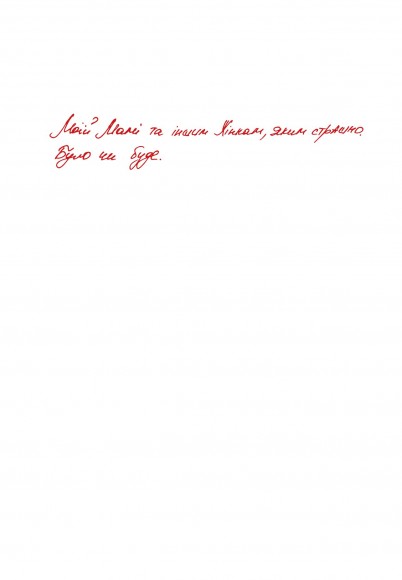 Моїй Мамі та іншим Жінкам, яким страшно.
Було чи буде.